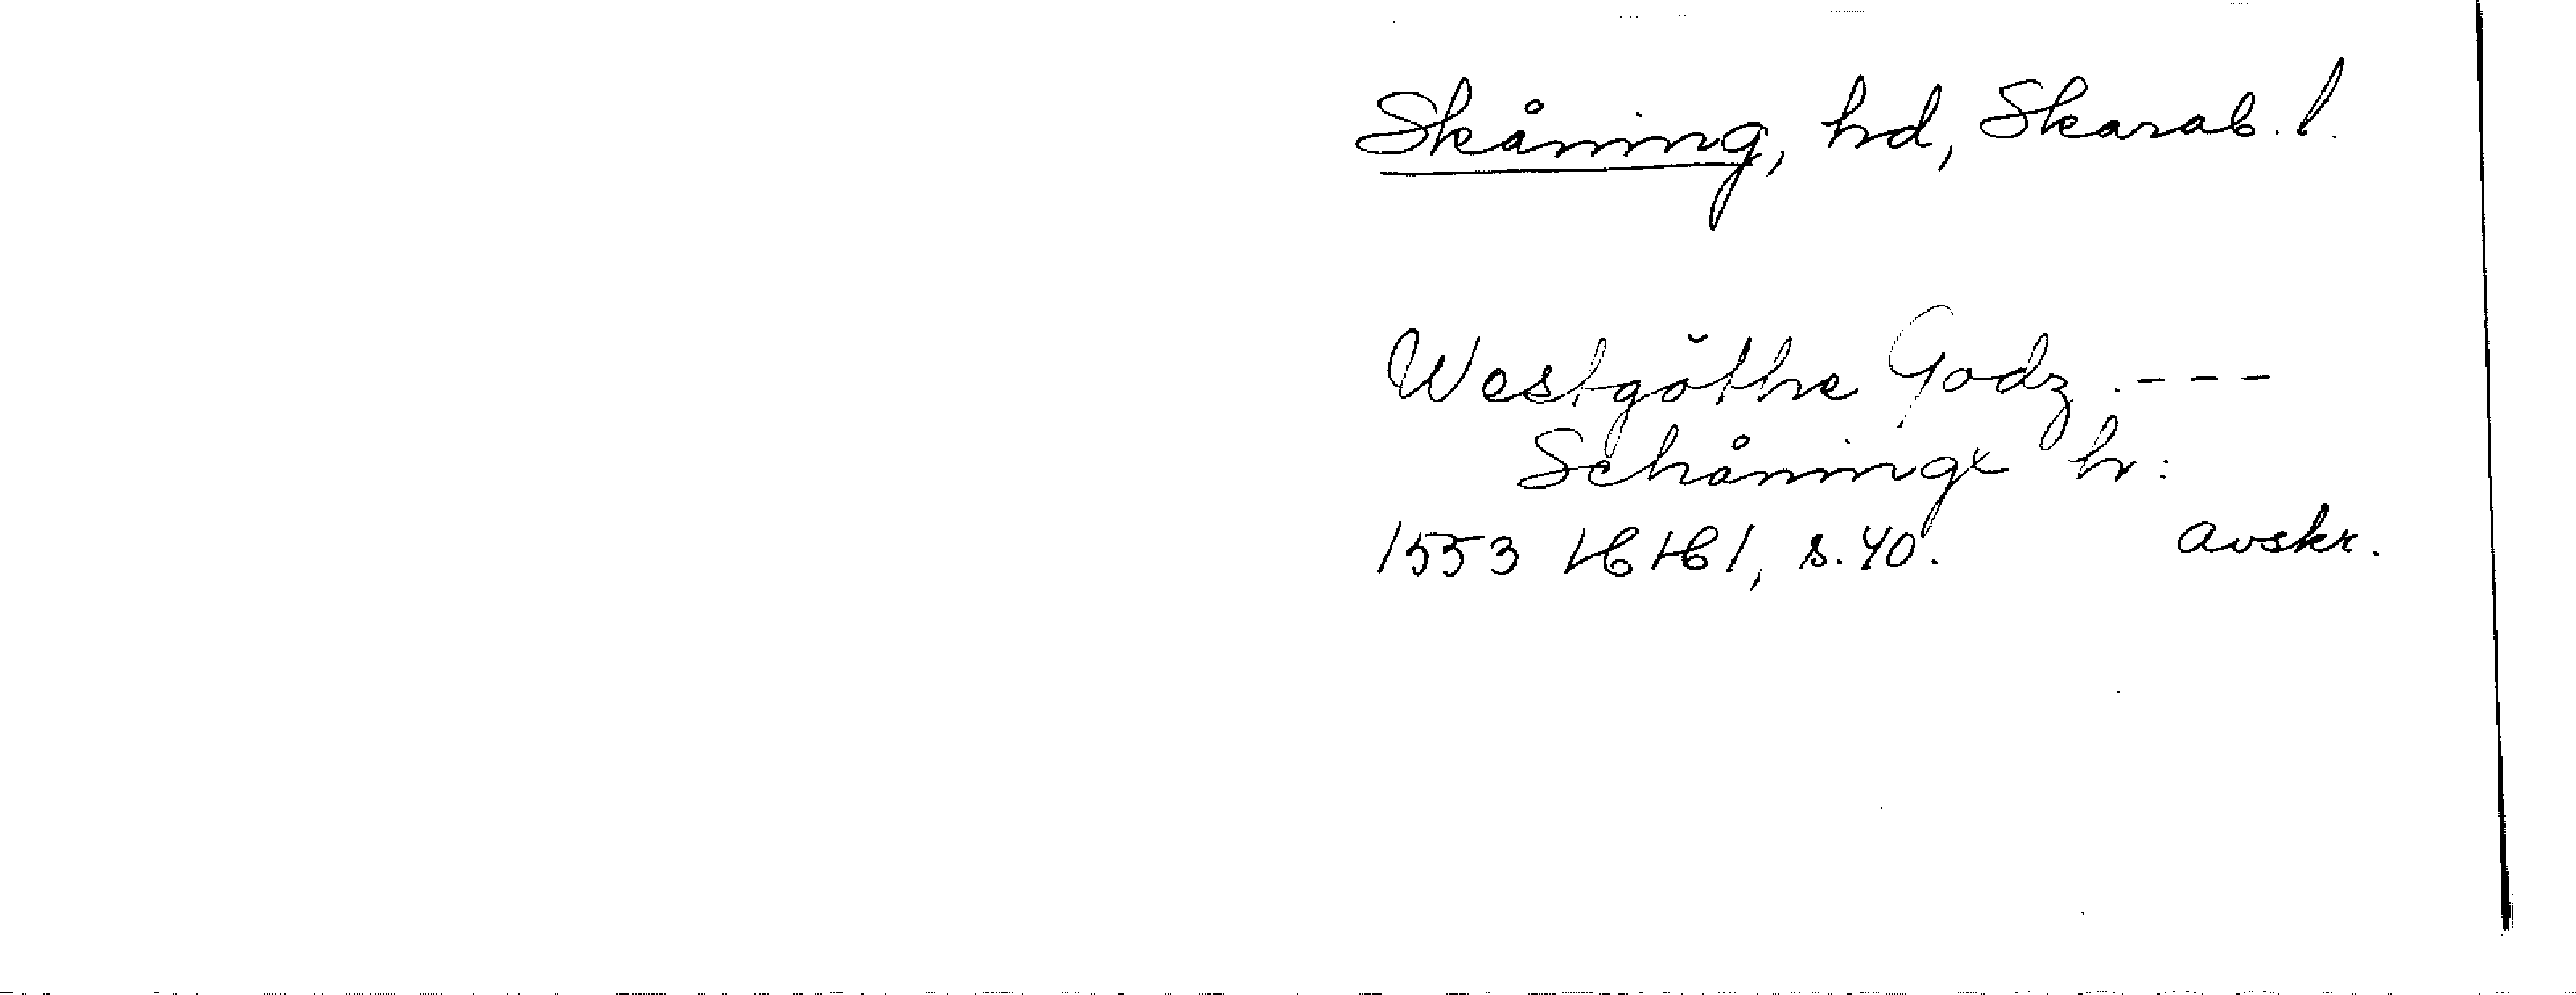 Skåning, hd, Skarab. l.
Westgöthe Godz . - - -
Schåningx hr:
1553 HH1, s. 40. avskr.